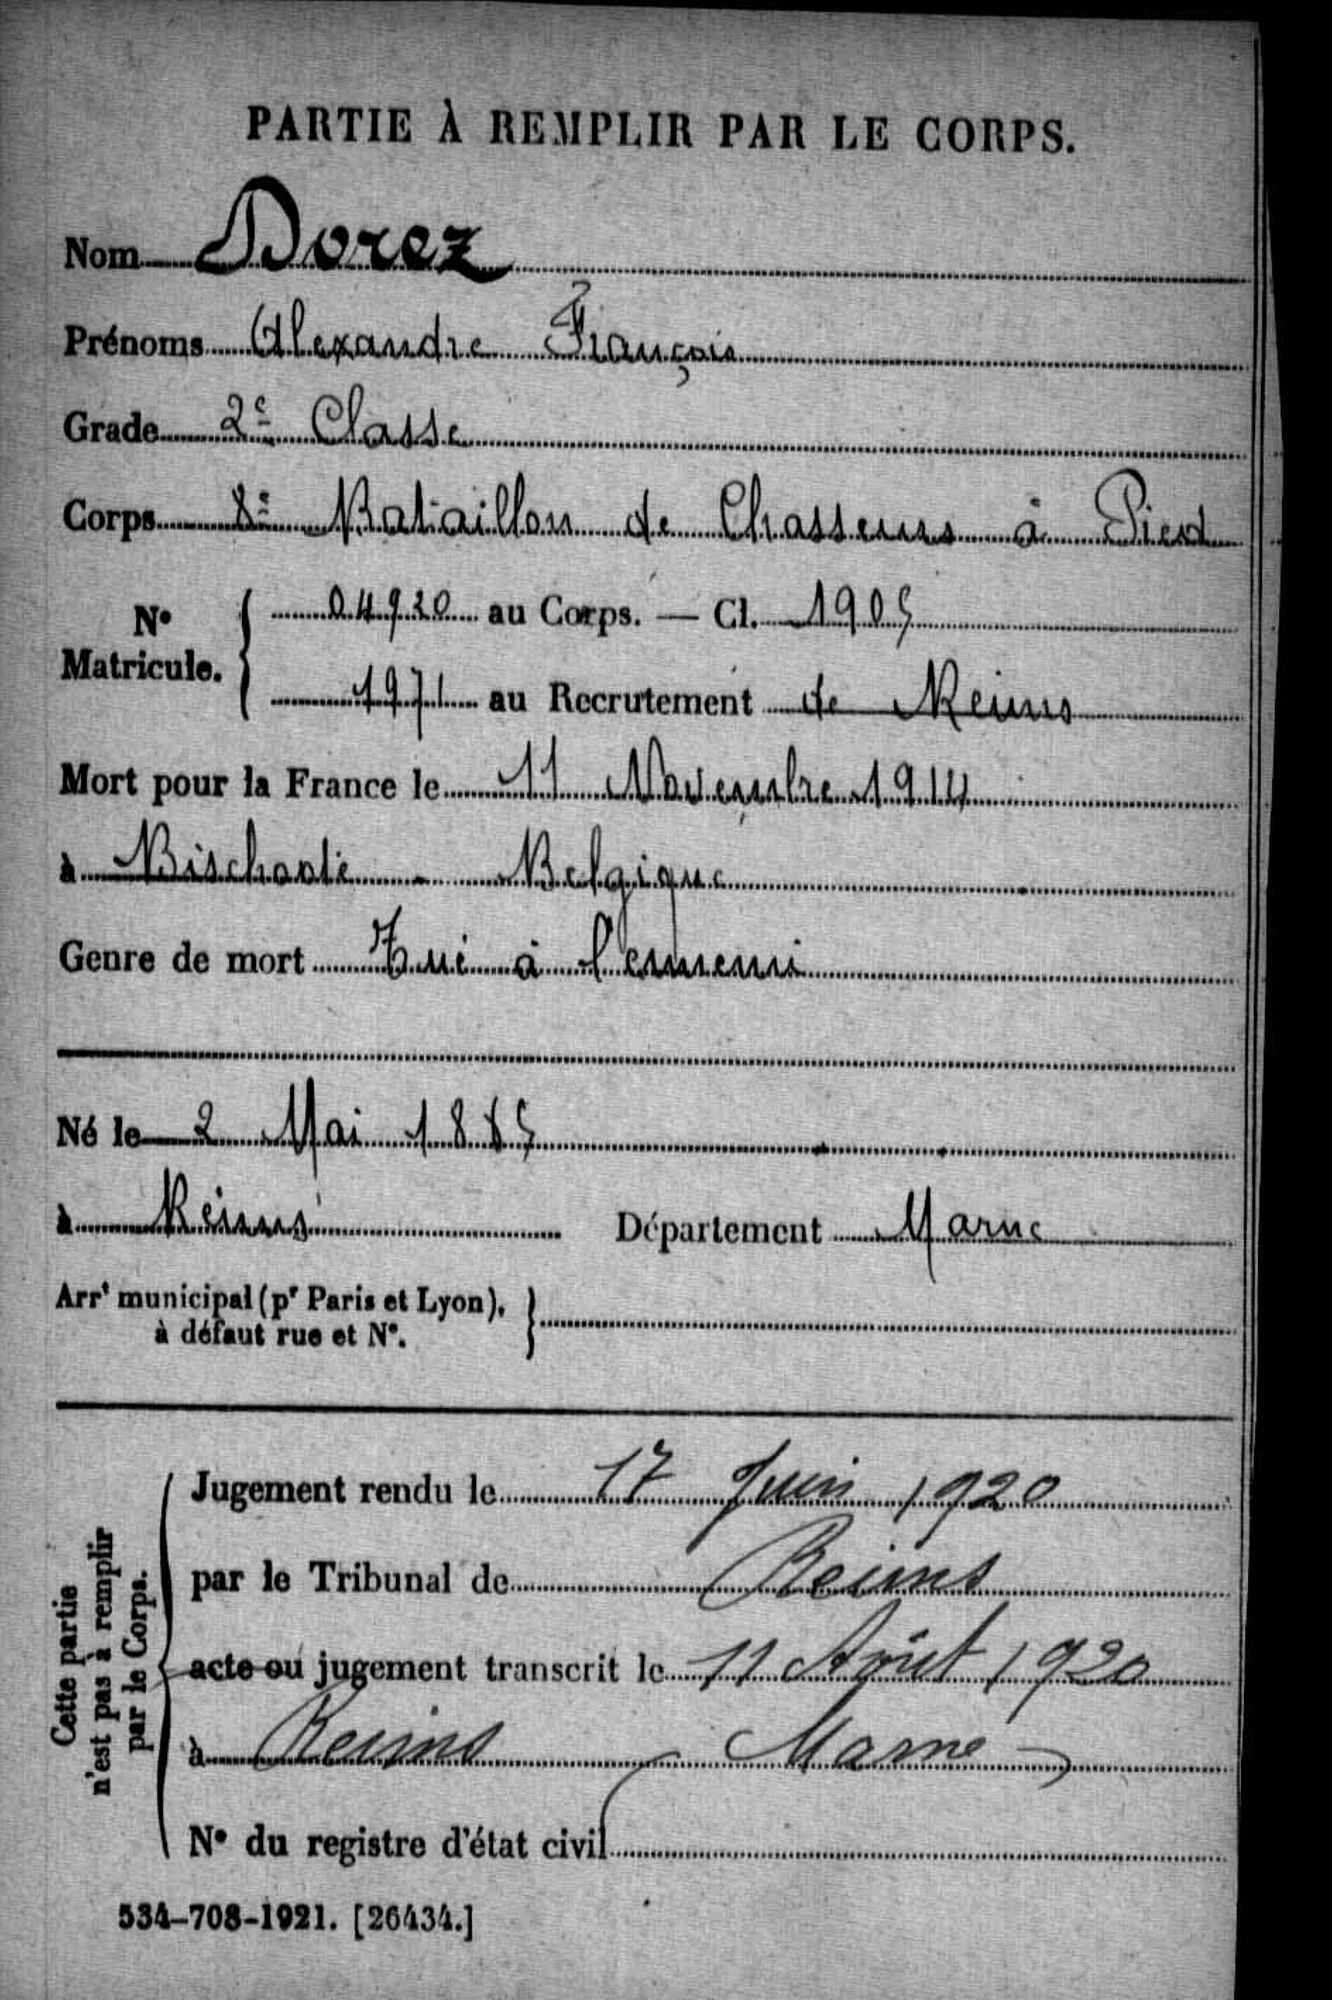 PARTIE À REMPLIR PAR LE CORPS.
Nom Dorez
Prénoms Alexandre François
Grade 2e Classe
Corps 8e Bataillon de Chasseurs à Pied
No Matricule. { 04920 au Corps. — Cl. 1905
1971 au Recrutement de Reims
Mort pour la France le 11 Novembre 1914
à Bischoote - Belgique
Genre de mort Tué à l'ennemi
Né le 2 Mai 1885
à Reims Département Marne
Arrt municipal (pr Paris et Lyon), }
à défaut rue et No.
Cette partie
n'est pas à remplir
par le Corps.
Jugement rendu le 17 Juin 1920
par le Tribunal de Reims
acte ou jugement transcrit le 11 Août 1920
à Reims (Marne)
No du registre d'état civil
534-708-1921. [26434.]